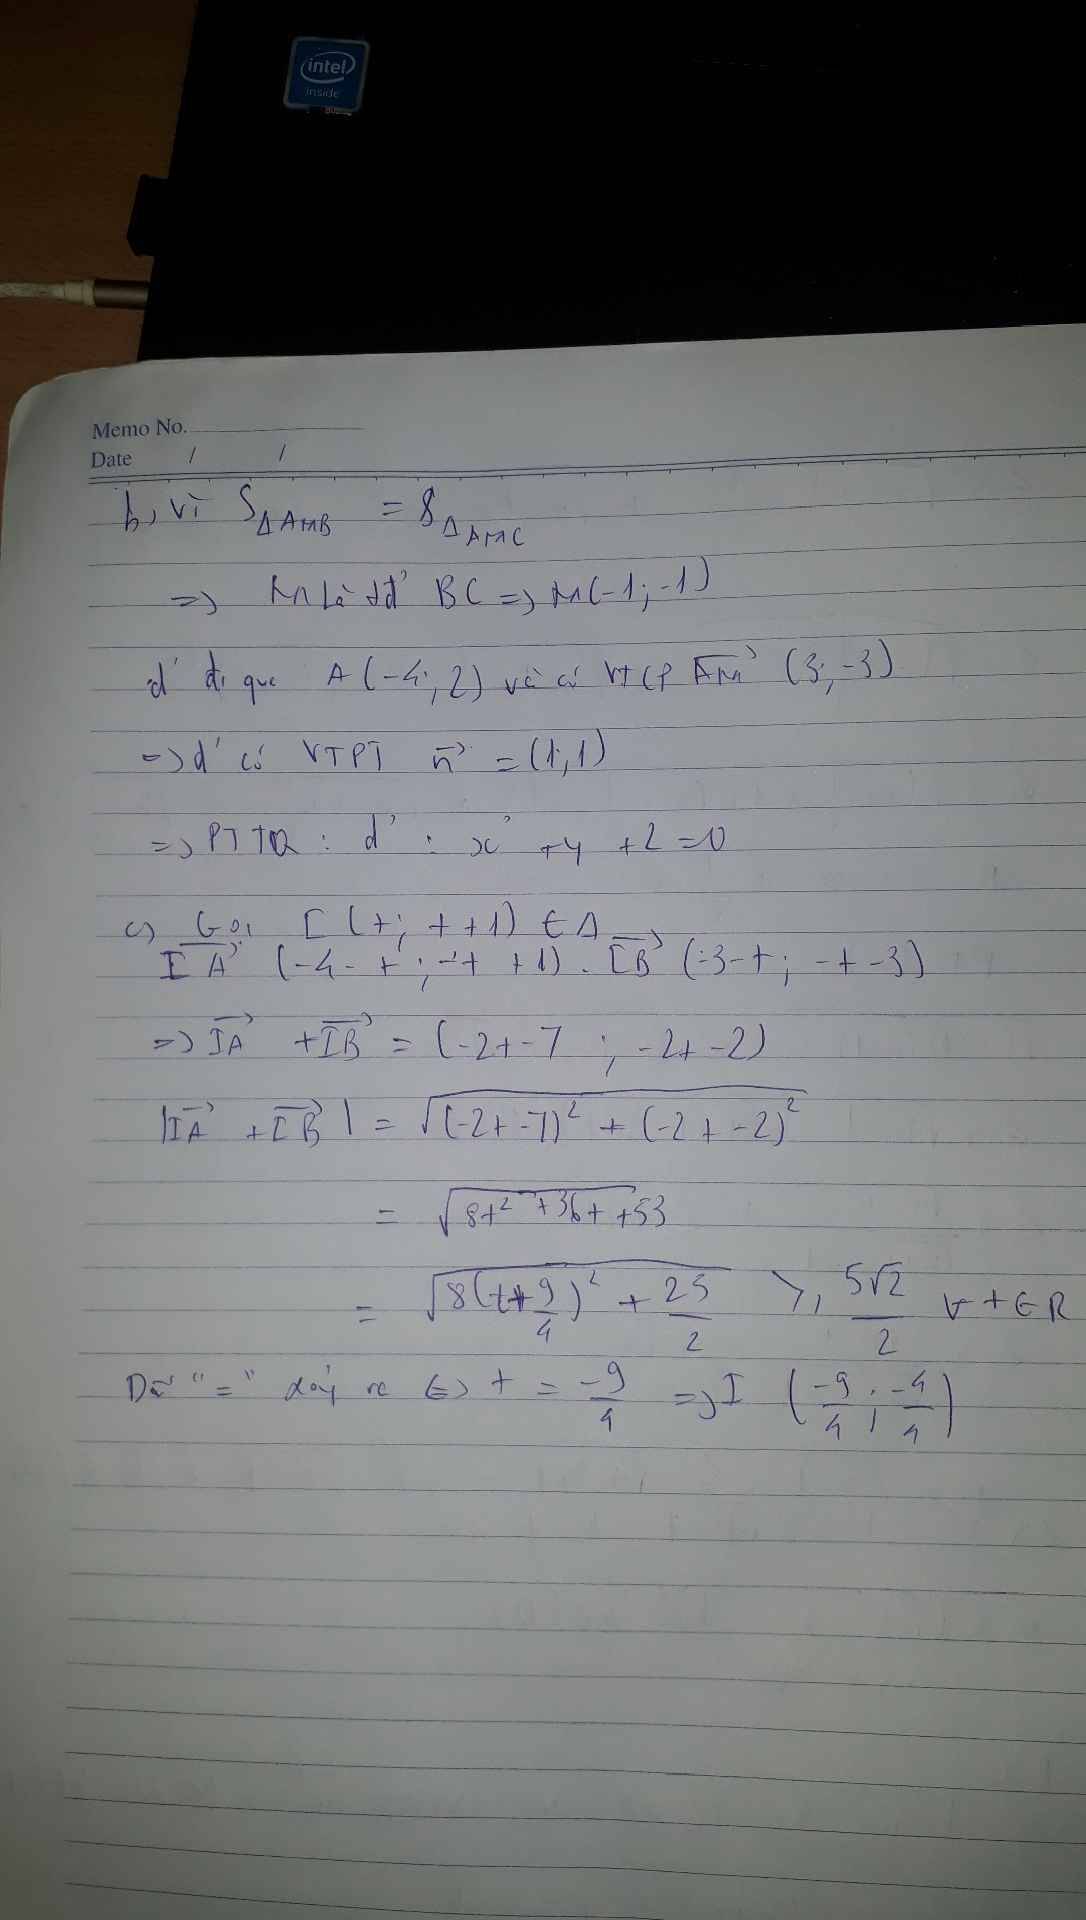 intel
inside
Memo No.
Date / /
b, vì S ΔAMB = S ΔAMC
=> M là tđ BC => M(-1; -1)
d' đi qua A (-4; 2) và có VTCP AM (3; -3)
=> d' có VTPT n = (1; 1)
=> PTTQ : d' : x + y + 2 = 0
c, Gọi I (t; t + 1) ∈ Δ
IA (-4 - t ; -t + 1) . IB (-3 - t ; -t - 3)
=> IA + IB = (-2t - 7 ; -2t - 2)
|IA + IB| = √(-2t - 7)² + (-2t - 2)²
= √8t² + 36t + 53
= √8(t + 9/4)² + 25/2 ≥ 5√2/2 ∀ t ∈ R
Dấ "=" xảy ra <=> t = -9/4 => I (-9/4 ; )